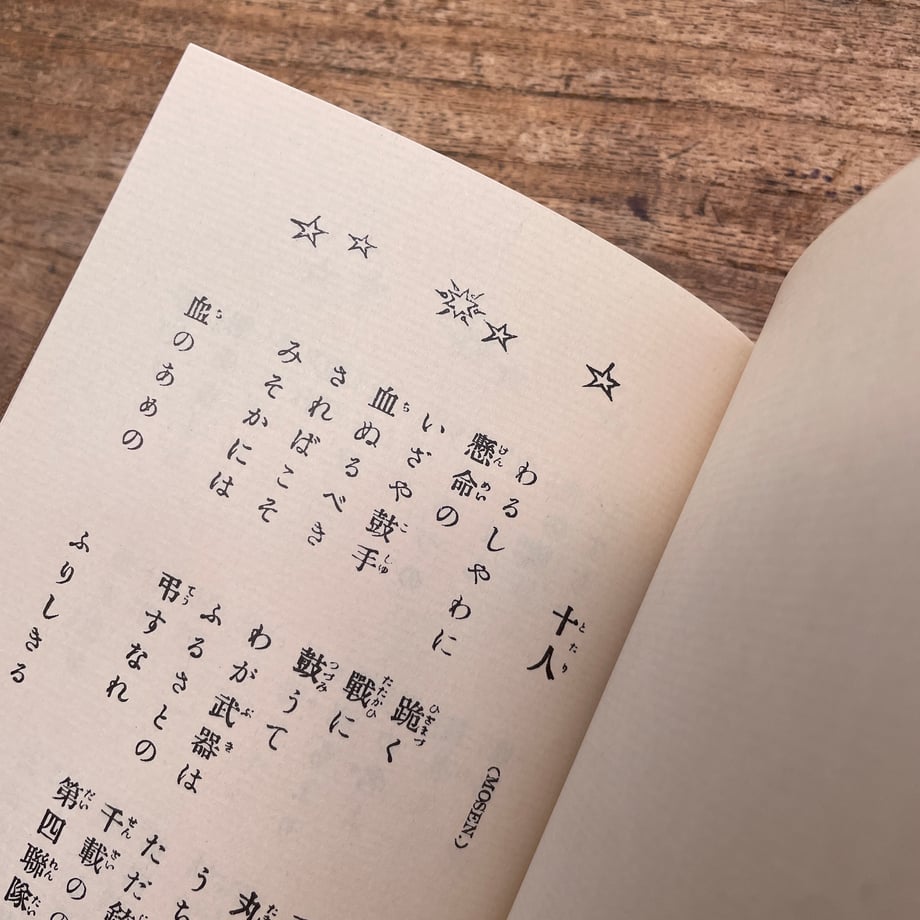 十人
(MOSEN.)
わるしやわに 跪く
懸命の 戰に 丸
いざや鼓手 鼓うて うち
血ぬるべき わが武器は ただ銃
さればこそ ふるさとの 千載の
みそかには 弔すなれ 第四聯隊の
血のあめの ふりしきる